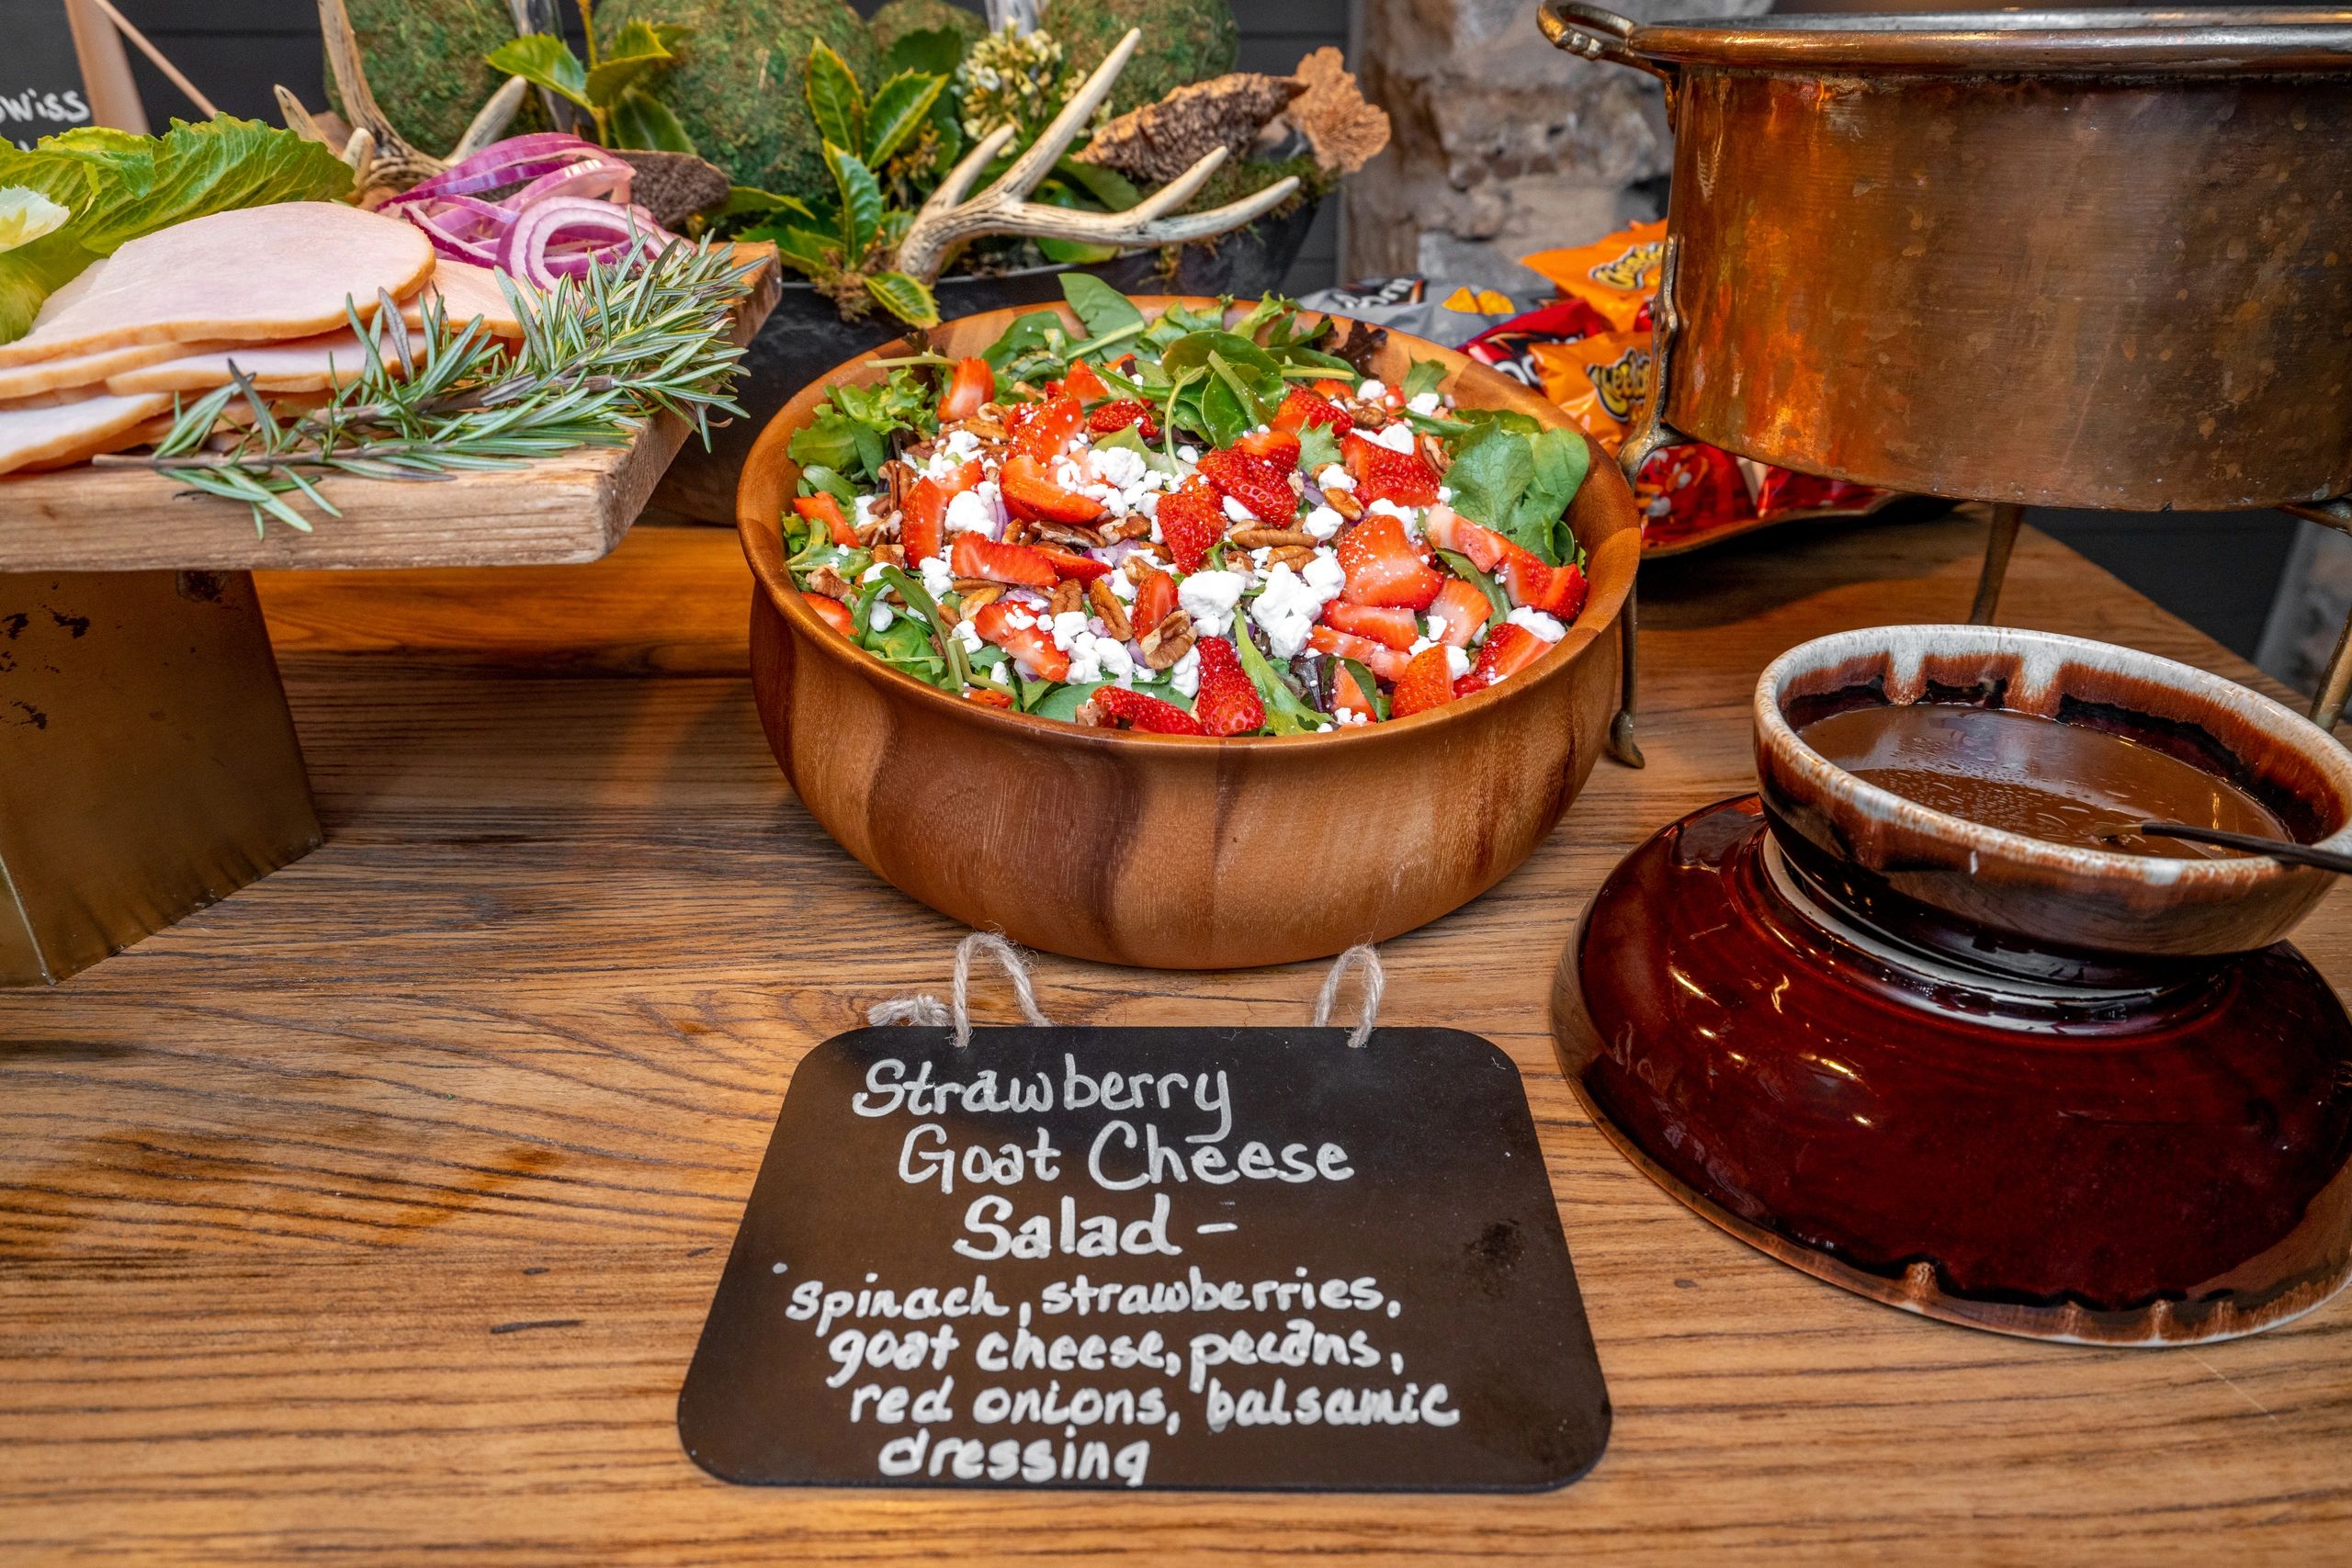 Swiss
Cheetos
Strawberry
Goat Cheese
Salad -
spinach, strawberries,
goat cheese, pecans,
red onions, balsamic
dressing